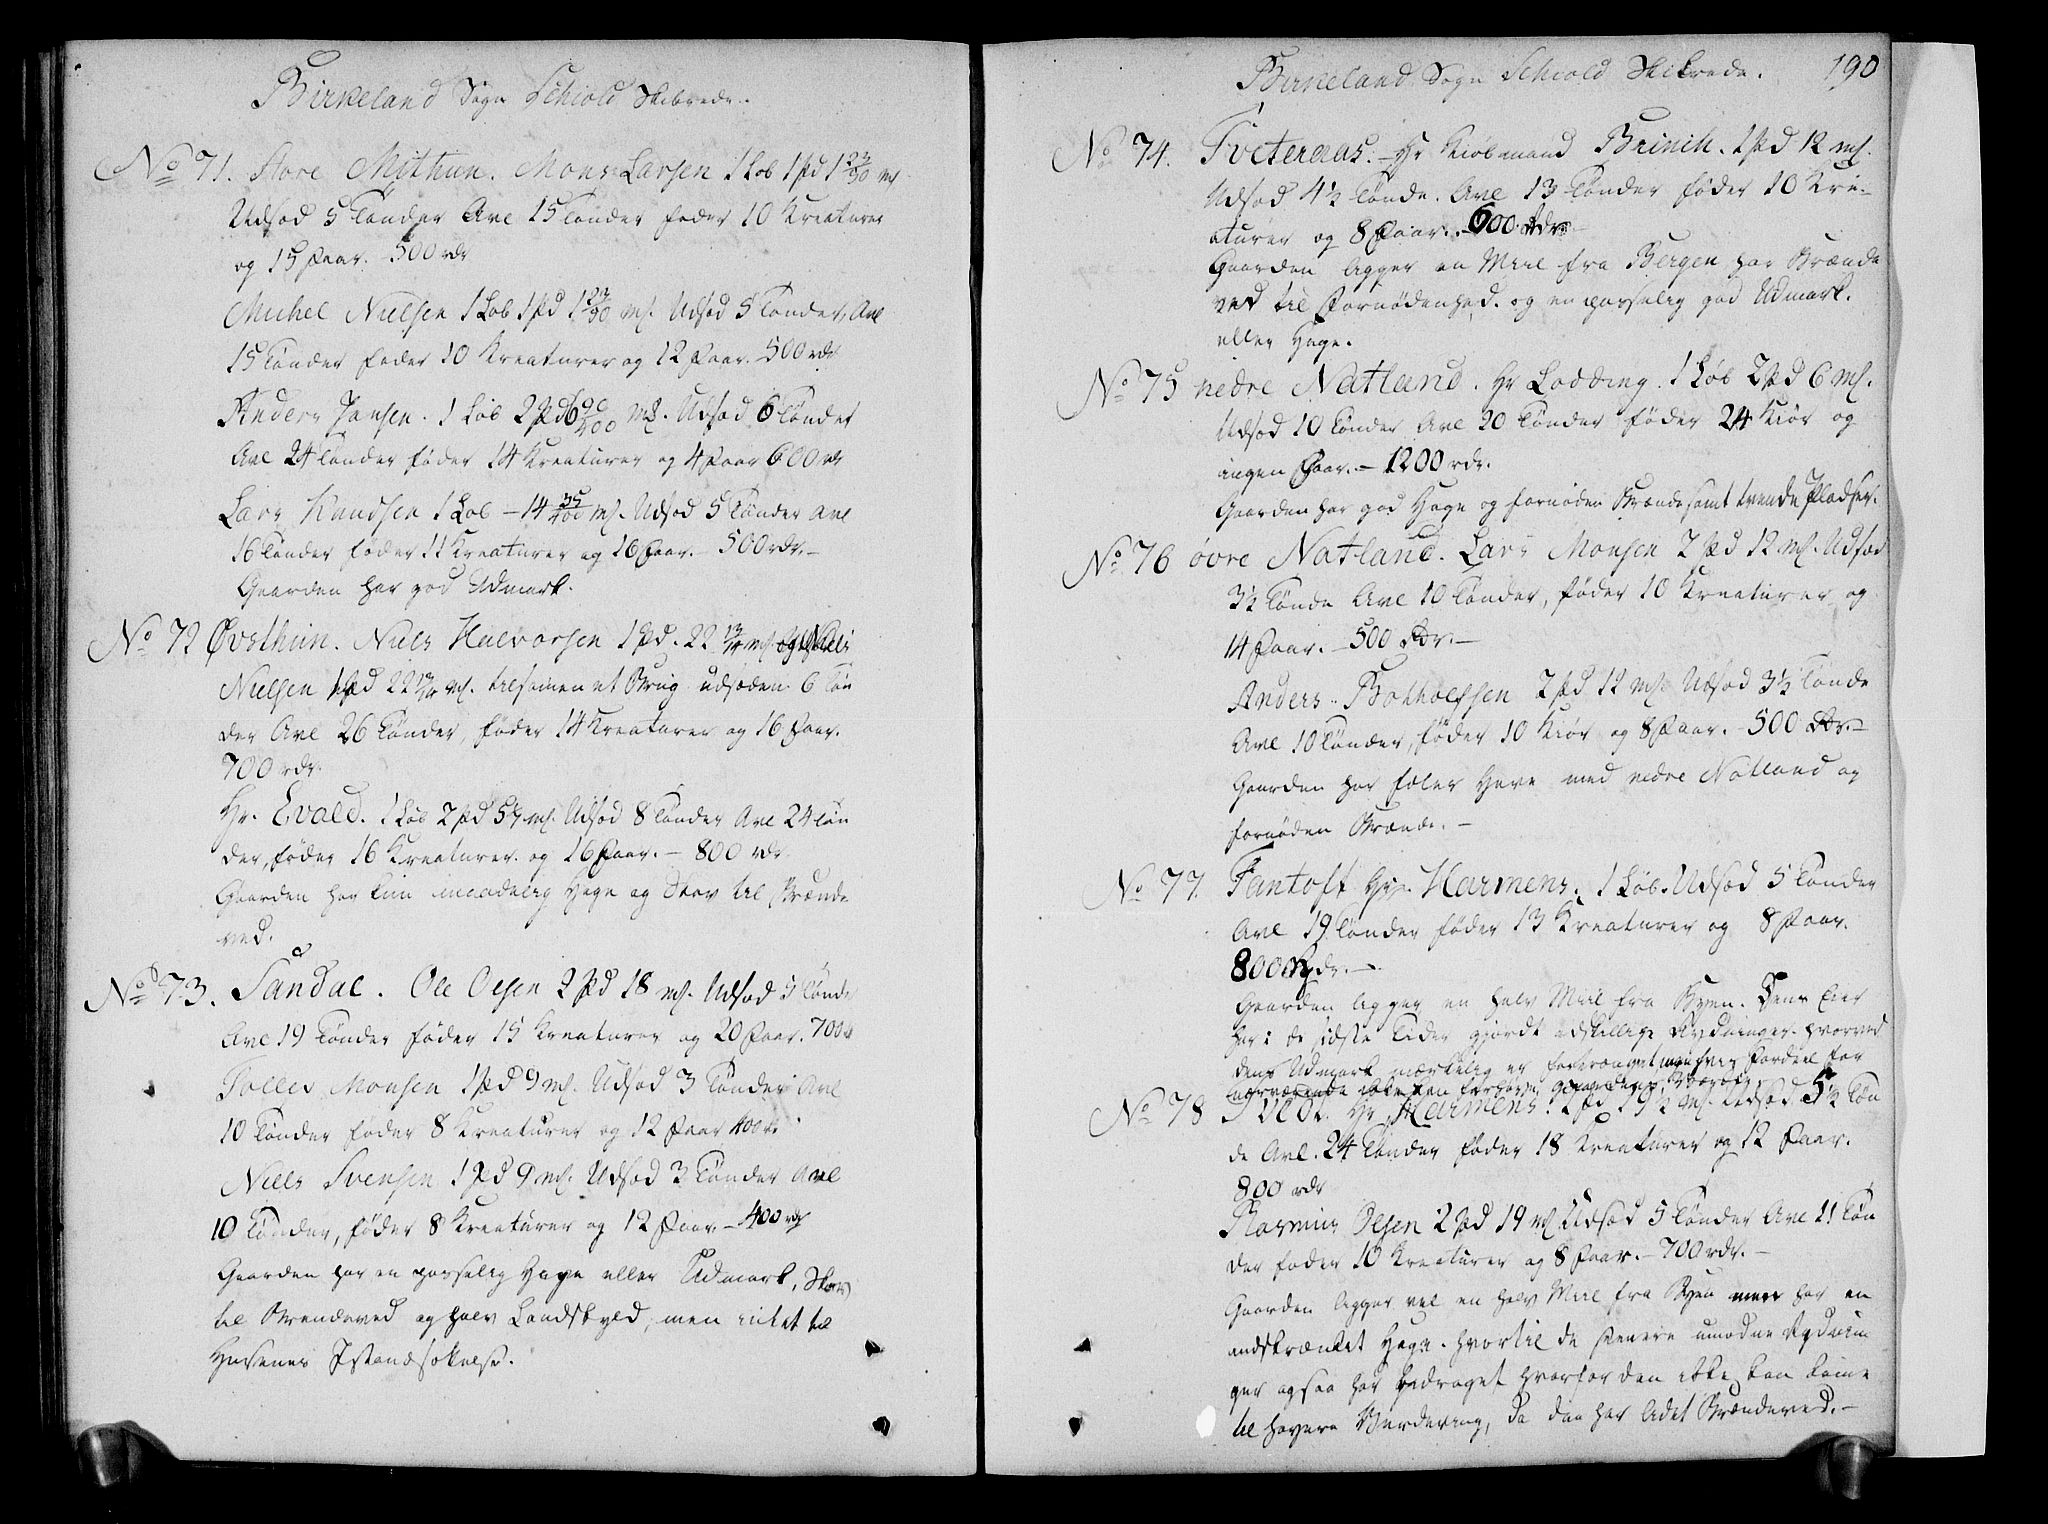 Birkeland Sogn Schiold Skibrede.
No 71. Store Mithun. Mons Larsen 1 Lob 1 pd 1 23/90 mk.
Udsod 5 Tönder Avl 15 Tönder foder 10 Kreaturer
og 15 Faar. 500 rdr
Michel Nielsen 1 Lob 1 pd 1 23/90 mk. Udsod 5 Tönder, Avl
15 Tönder foder 10 Kreaturer og 12 Faar. 500 rdr
Anders Jansen. 1 Löb 2 pd 6 mk. Udsod 6 Tönder
Avl 24 Tönder föder 14 Kreaturer og 4 Faar 600 rdr
Lars Knudsen 1 Lob – 14 35/400 mk. Udsod 5 Tönder avl
16 Tönder föder 11 Kreaturer og 16 Faar. – 500 rdr. –
Gaarden har god Udmark.
No 72 Øvsthun. Niels Halvorsen 1 pd. 22 mk. og Niels
Nielsen 1 pd 22 mk. tilsamen et Brug. udsöden 6 Tön
der Avl 26 Tönder, föder 14 Kreaturer og 16 Faar.
700 rdr.
Hr. Evald. 1 Löb 2 pd mk. Udsod 8 Tönder Avl 24 Tön
der, föder 16 Kreaturer. og 16 Faar. – 800 rdr.
Gaarden har kun maadelig Hage og Skov til Brænde
ved.
No 73. Sandal. Ole Olsen 2 pd 18 mk. Udsod 5 Tönder
Avl 19 Tönder föder 15 Kreaturer og 20 Faar. 700 rdr
Tolles Monsen 1 pd 9 mk. Udsod 3 Tönder Avl
10 Tönder föder 8 Kreaturer og 12 Faar 400 rdr.
Niels Svensen 1 pd 9 mk. Udsod 3 Tönder Avl
10 Tönder, föder 8 Kreaturer og 12 Faar – 400 rdr
Gaarden har en passelig Hage eller Udmark, Skov
til Brendeved og halv Landskyld, men intet til
Husenes Istandsökelse.
Birkeland Sogn Schiold Skibrede. 190
No 74. Tveteraas. – Hr Kiöbmand Brinih. 1 pd 12 mk.
Udsod 4½ Tönde. Avl 13 Tönder föder 10 Kre-
aturer og 8 Faar. – 600 rdr
Gaarden ligger en Miil fra Bergen har Brænde
ved til Fornödenhed. og en passelig god Udmark.
eller Hage.
No 75 nedre Natland. Hr Lodding. 1 Löb 2 pd 6 mk.
Udsod 10 Tönder Avl 30 Tönder föder 24 Kiör og
ingen Faar. – 1200 rdr.
Gaarden har god Hage og fornöden Brænde samt trende Pladser.
No 76 övre Natland. Lars Monsen 2 pd 12 mk. Udsod
3½ Tönde Avl 10 Tönder, föder 10 Kreaturer og
14 Faar. – 500 Rdr. –
Anders Botholfsen 2 pd 12 mk. Udsod 3½ Tönde
Avl 10 Tönder, föder 10 Kiör og 8 Faar. – 500 Rdr. –
Gaarden har Have med nedre Natland og
fornöden Brænde. –
No 77. Fantoft Hr. Harmens. 1 Löb. Udsod 5 Tönder
Avl 19 Tönder föder 13 Kreaturer og 8 Faar.
800 Rdr. –
Gaarden ligger en halv Miil fra Byen. Dens Eier
har i de sidste Tider gjordt adskillige Rydninger hvorved
dens Udmark mærkelig er Fordeel for
nærværende ikke kan forhöye Gaardens Værdie
No 78 Tvedt. Hr. Harmens. 2 pd 19½ mk. Udsod 5½ Tön
de Avl. 24 Tönder föder 18 Kreaturer og 12 Faar.
800 rdr
Rasmus Olsen 2 pd 19 mk Udsod 5 Tönder Avl 21 Tön
der foder 10 Kreaturer og 8 Faar. – 700 rdr. –
Gaarden ligger vel en halv Miil fra Byen men har en
indskrænket Hage. hvortil de senere umodne Rydnin
ger ogsaa har bidraget hvorfor den ikke kan komme
til höyere Vurdering, da den har lidet Brændeved. –